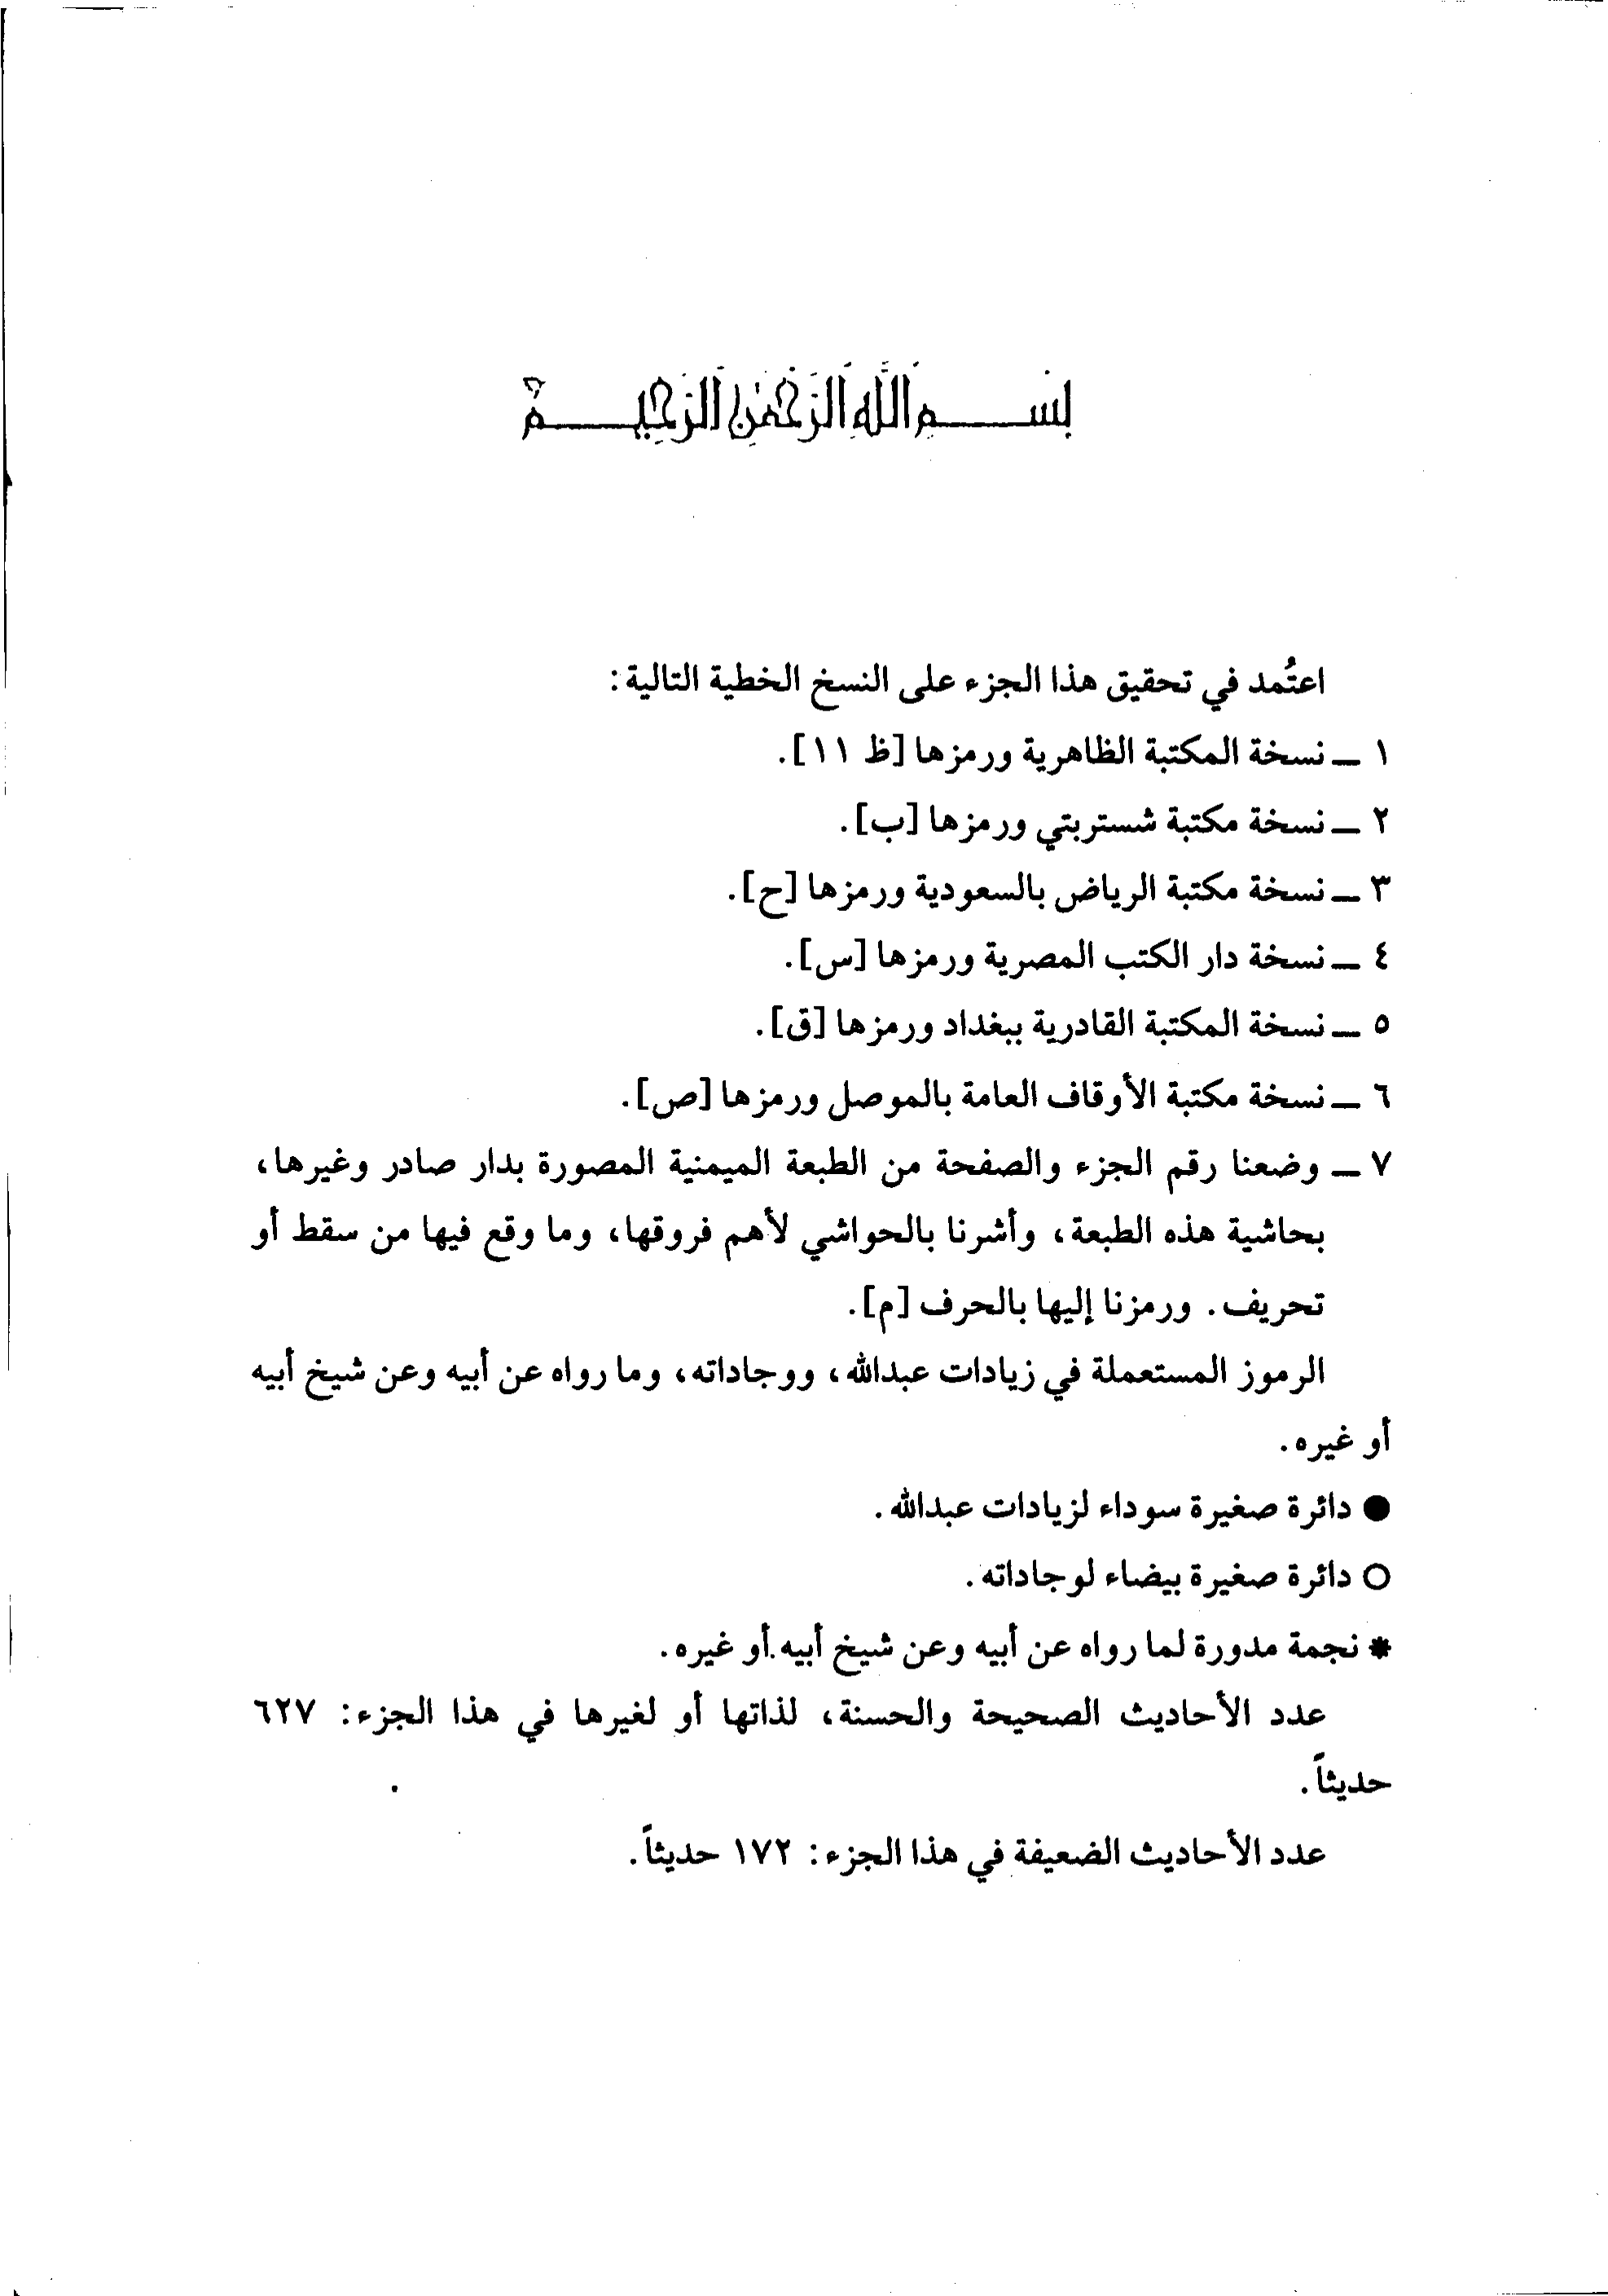 بسم الله الرحمن الرحيم
اعتُمد في تحقيق هذا الجزء على النسخ الخطية التالية:
١ ــ نسخة المكتبة الظاهرية ورمزها [ظ ١١].
٢ ــ نسخة مكتبة شستربتي ورمزها [ب].
٣ ــ نسخة مكتبة الرياض بالسعودية ورمزها [ح].
٤ ــ نسخة دار الكتب المصرية ورمزها [س].
٥ ــ نسخة المكتبة القادرية ببغداد ورمزها [ق].
٦ ــ نسخة مكتبة الأوقاف العامة بالموصل ورمزها [ص].
٧ ــ وضعنا رقم الجزء والصفحة من الطبعة الميمنية المصورة بدار صادر وغيرها،
بحاشية هذه الطبعة، وأشرنا بالحواشي لأهم فروقها، وما وقع فيها من سقط أو
تحريف. ورمزنا إليها بالحرف [م].
الرموز المستعملة في زيادات عبدالله، ووجاداته، وما رواه عن أبيه وعن شيخ أبيه
أو غيره.
● دائرة صغيرة سوداء لزيادات عبدالله.
○ دائرة صغيرة بيضاء لوجاداته.
* نجمة مدورة لما رواه عن أبيه وعن شيخ أبيه أو غيره.
عدد الأحاديث الصحيحة والحسنة، لذاتها أو لغيرها في هذا الجزء: ٦٢٧
حديثاً.
عدد الأحاديث الضعيفة في هذا الجزء: ١٧٢ حديثاً.